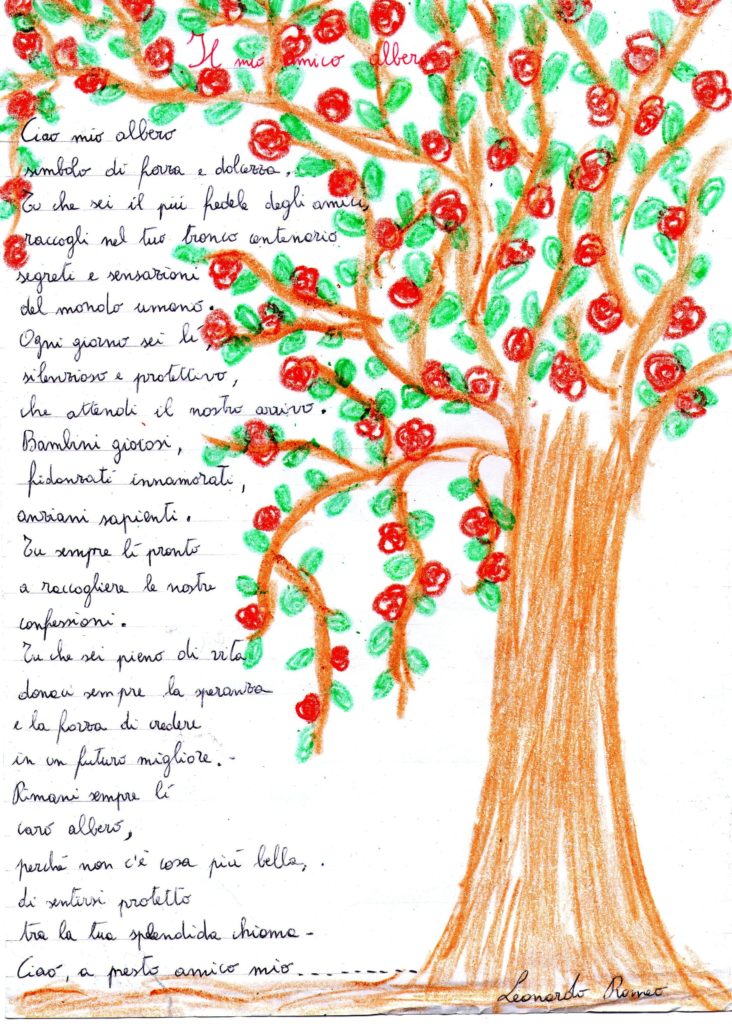 Il mio amico albero
Ciao mio albero
simbolo di forza e dolcezza.
Tu che sei il più fedele degli amici,
raccogli nel tuo tronco centenario
segreti e sensazioni
del mondo umano.
Ogni giorno sei lì,
silenzioso e protettivo,
che attendi il nostro arrivo.
Bambini giocosi,
fidanzati innamorati,
anziani sapienti.
Tu sempre lì pronto
a raccogliere le nostre
confessioni.
Tu che sei pieno di vita
donaci sempre la speranza
e la forza di credere
in un futuro migliore.-
Rimani sempre lì
caro albero,
perché non c'è cosa più bella,.
di sentirsi protetto
tra la tua splendida chioma-
Ciao, a presto amico mio----------
Leonardo Romeo